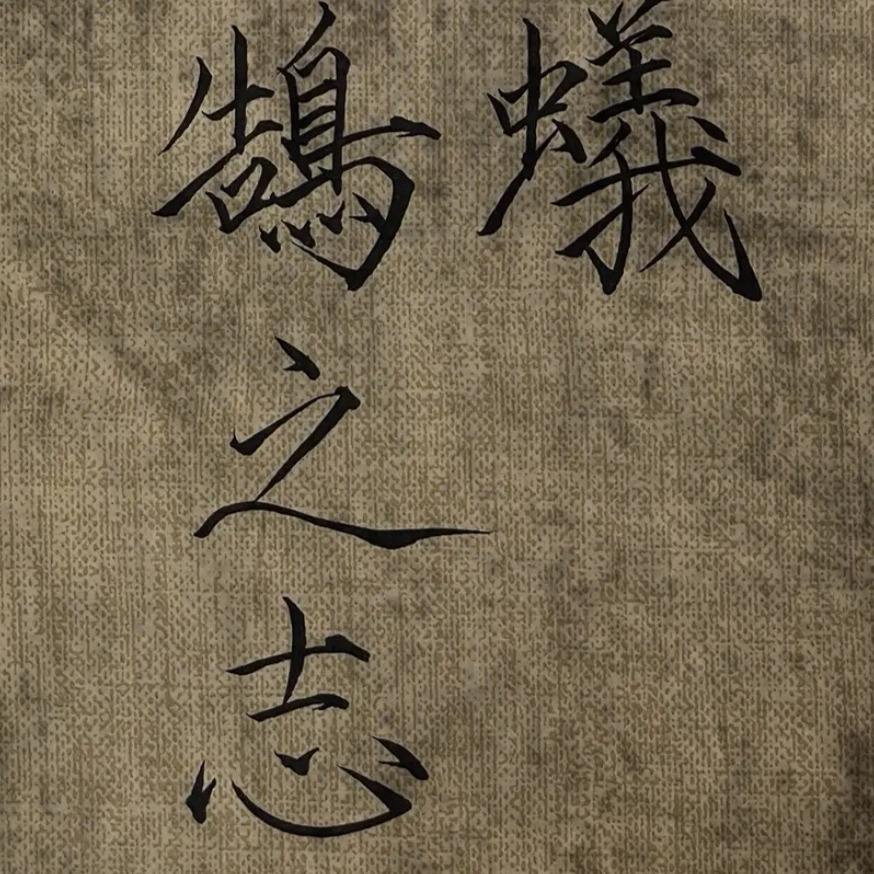 蟻
鵠之志